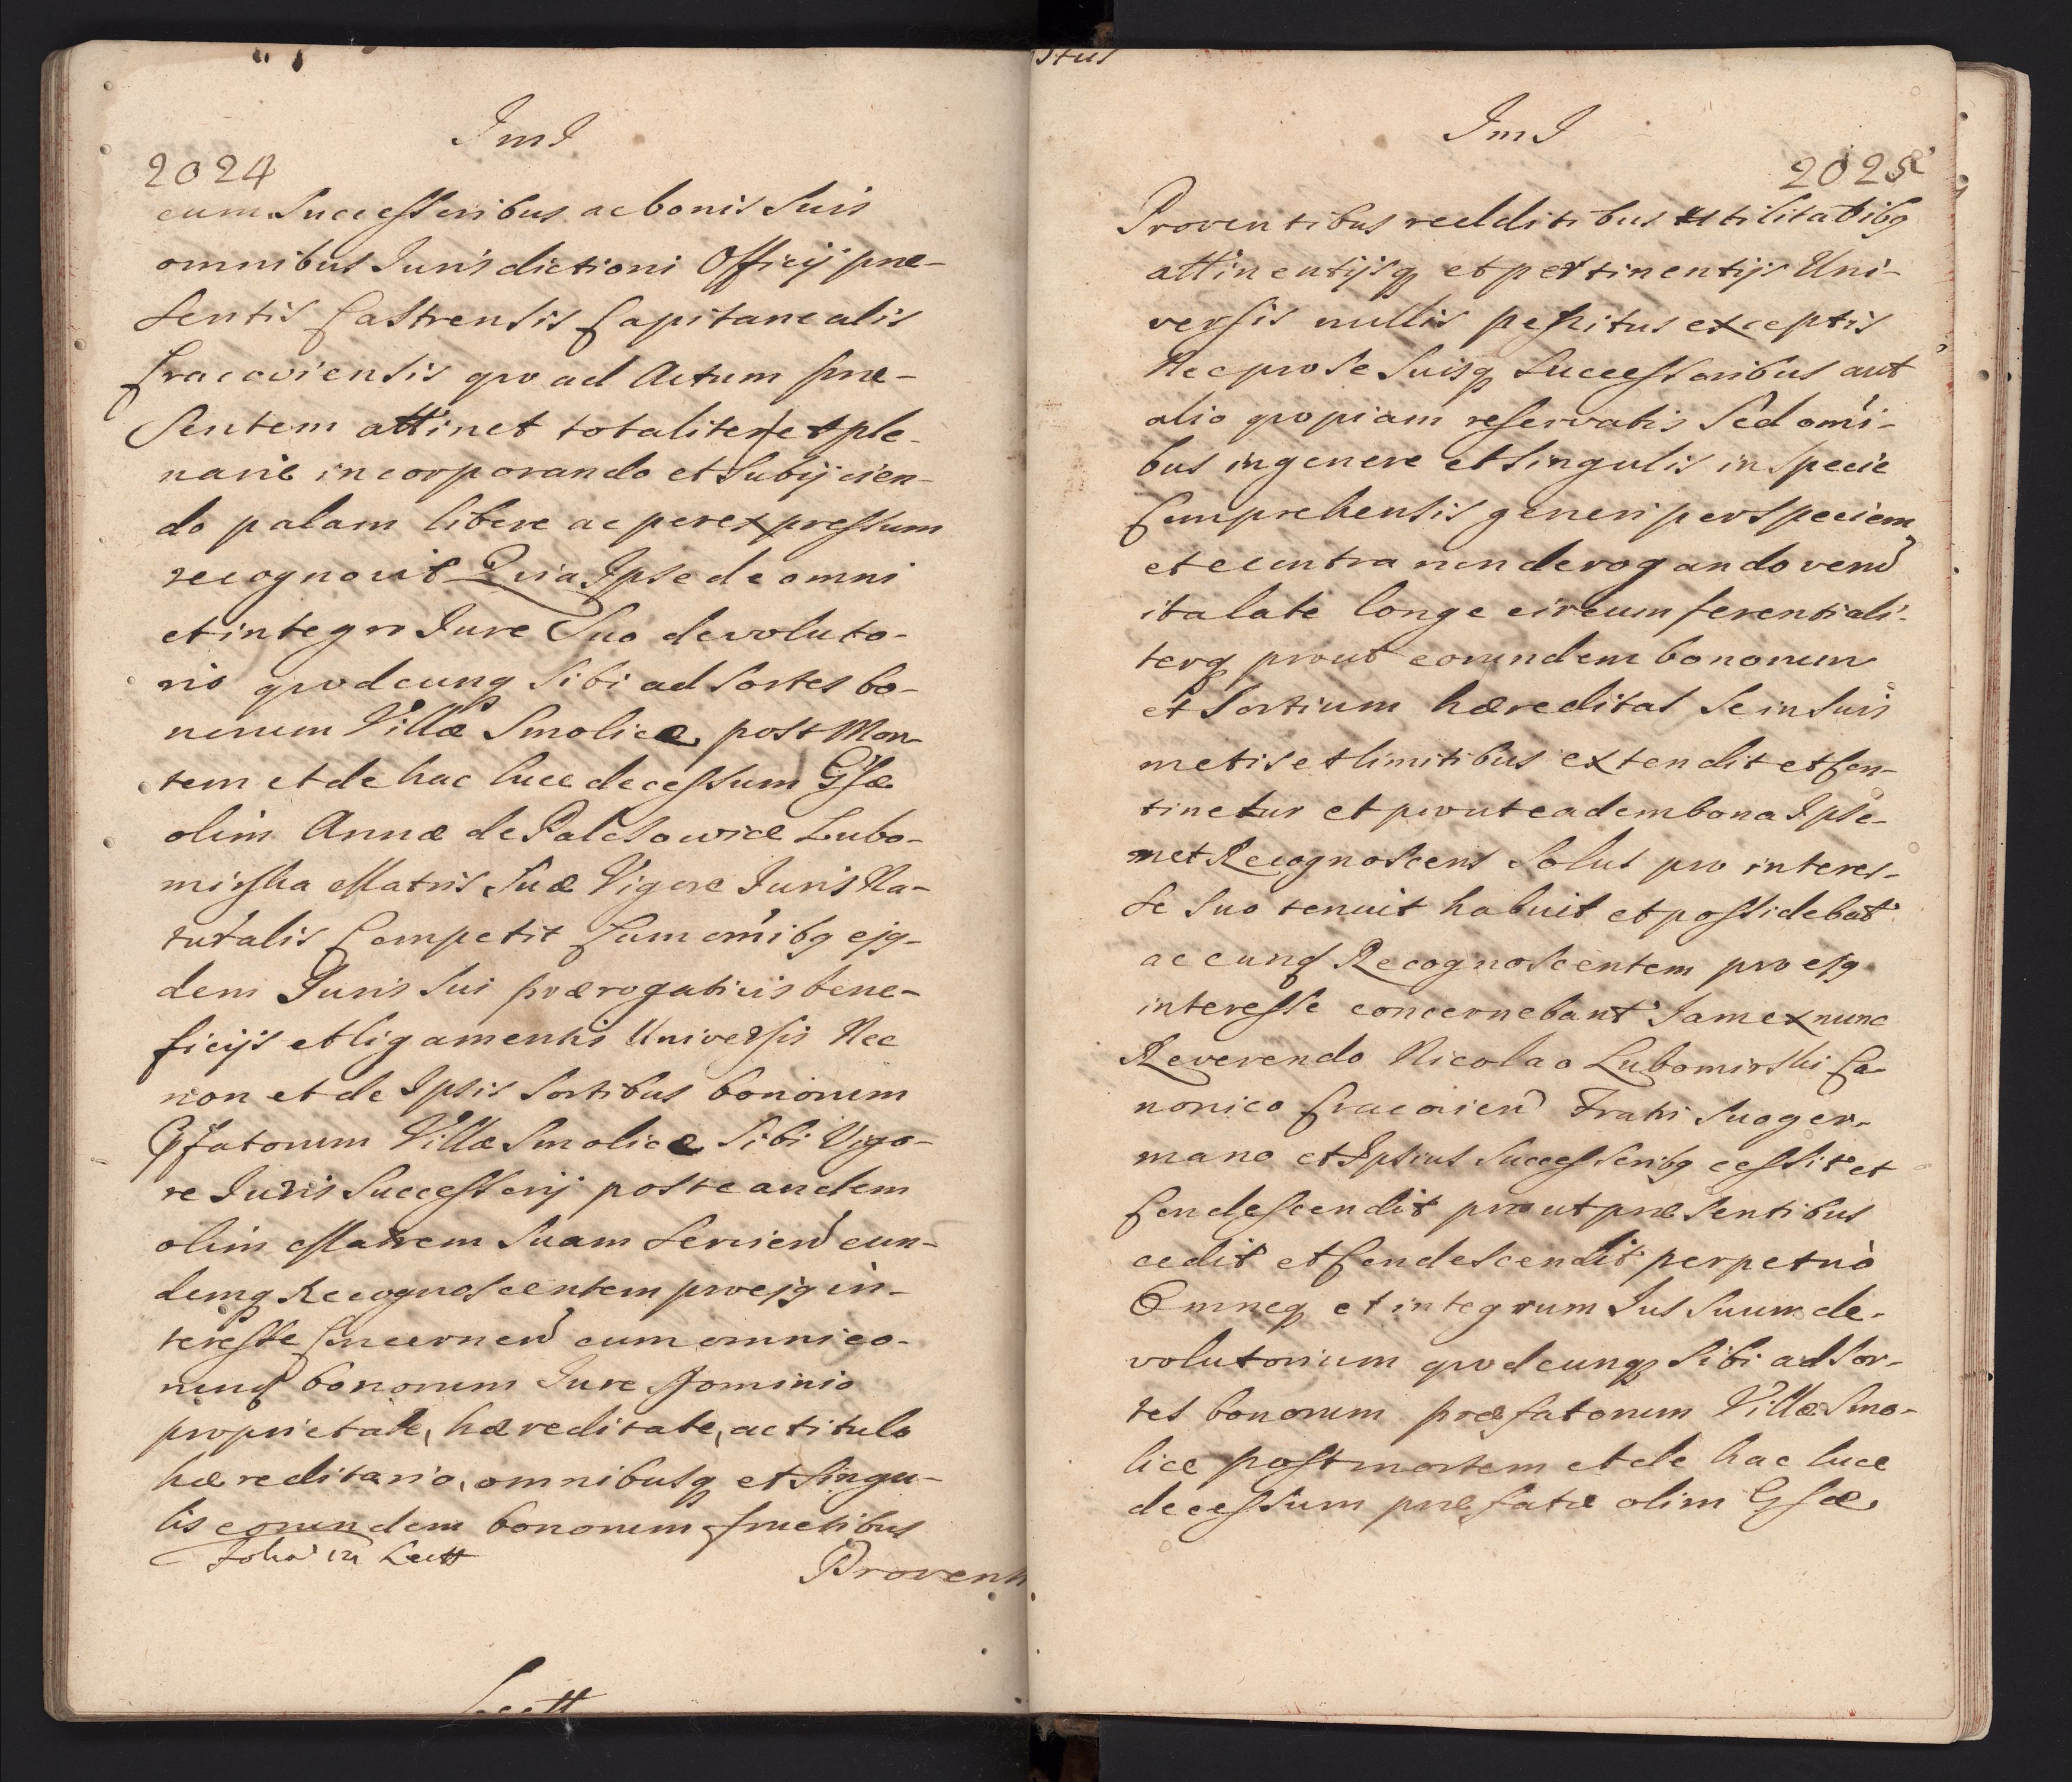 ImI
2024
cum Successoribus ac bonis Suis
omnibus Jurisdictioni Officij præ-
sentis Castrensis Capitanealis
Cracoviensis quo ad Actum præ-
Sentem attinet totaliter et ple-
narie incorporando et Subijcien-
do palam libere ac per expressum
recognovit Quia Ipse de omni
et integro Jure Suo devoluto-
rio quodcunq Sibi ad Sortes bo-
norum Villæ Smolice post Mor-
tem et de hac luce decessum Gsæ
olim Annæ de Palczowice Lubo-
mirska Matris Suæ Vigore Juris Na-
turalis Competit Cum om̄ibq ejq-
dem Juris Sui prærogativis bene-
ficijs et ligamentis Universis Nec
non et de Ipsis Sortibus bonorum
Pfatorum Villæ Smolice Sibi Vigo-
re Juris Successorij post eandem
olim Matrem Suam Servien̄ eun-
demq Recognoscentem pro ejq in-
teresse Concernen̄ cum omni eo-
rund bonorum Jure Dominio
proprietate, hæreditate, ac titulo
hæreditario, omnibusq et Singu-
lis eorundem bonorum fructibus
Provent
Lectt
stus
ImI
2025
Proventibus redditibus utilitatibq
attinentijsq et pertinentijs Uni-
versis nullis penitus exceptis
Nec pro se Suisq Successoribus aut
alio quopiam reservatis Sed om̄i-
bus in genere et Singulis in Specie
Comprehensis generi per Speciem
et e contra non derogando ven̄
ita late longe circumferentiali-
terq prout eorundem bonorum
et Sortium hæreditas Se in Suis
metis et limitibus extendit et Con-
tinetur et prout eadem bona Ipse-
met Recognoscens Solus pro interes-
se Suo tenuit habuit et possidebat
ac eund Recognoscentem pro ejq
interesse concernebant Jam ex nunc
Reverendo Nicolao Lubomirski Ca-
nonico Cracovien̄ Fratri Suo ger-
mano et Ipsius Successoribq cessit et
Condescendit prout præsentibus
cedit et Condescendit perpetuò
Omneq et integrum Jus Suum de-
volutorium quodcunq Sibi ad Sor-
tes bonorum præfatorum Villæ Smo-
lice post mortem et de hac luce
decessum præfatæ olim Gsæ